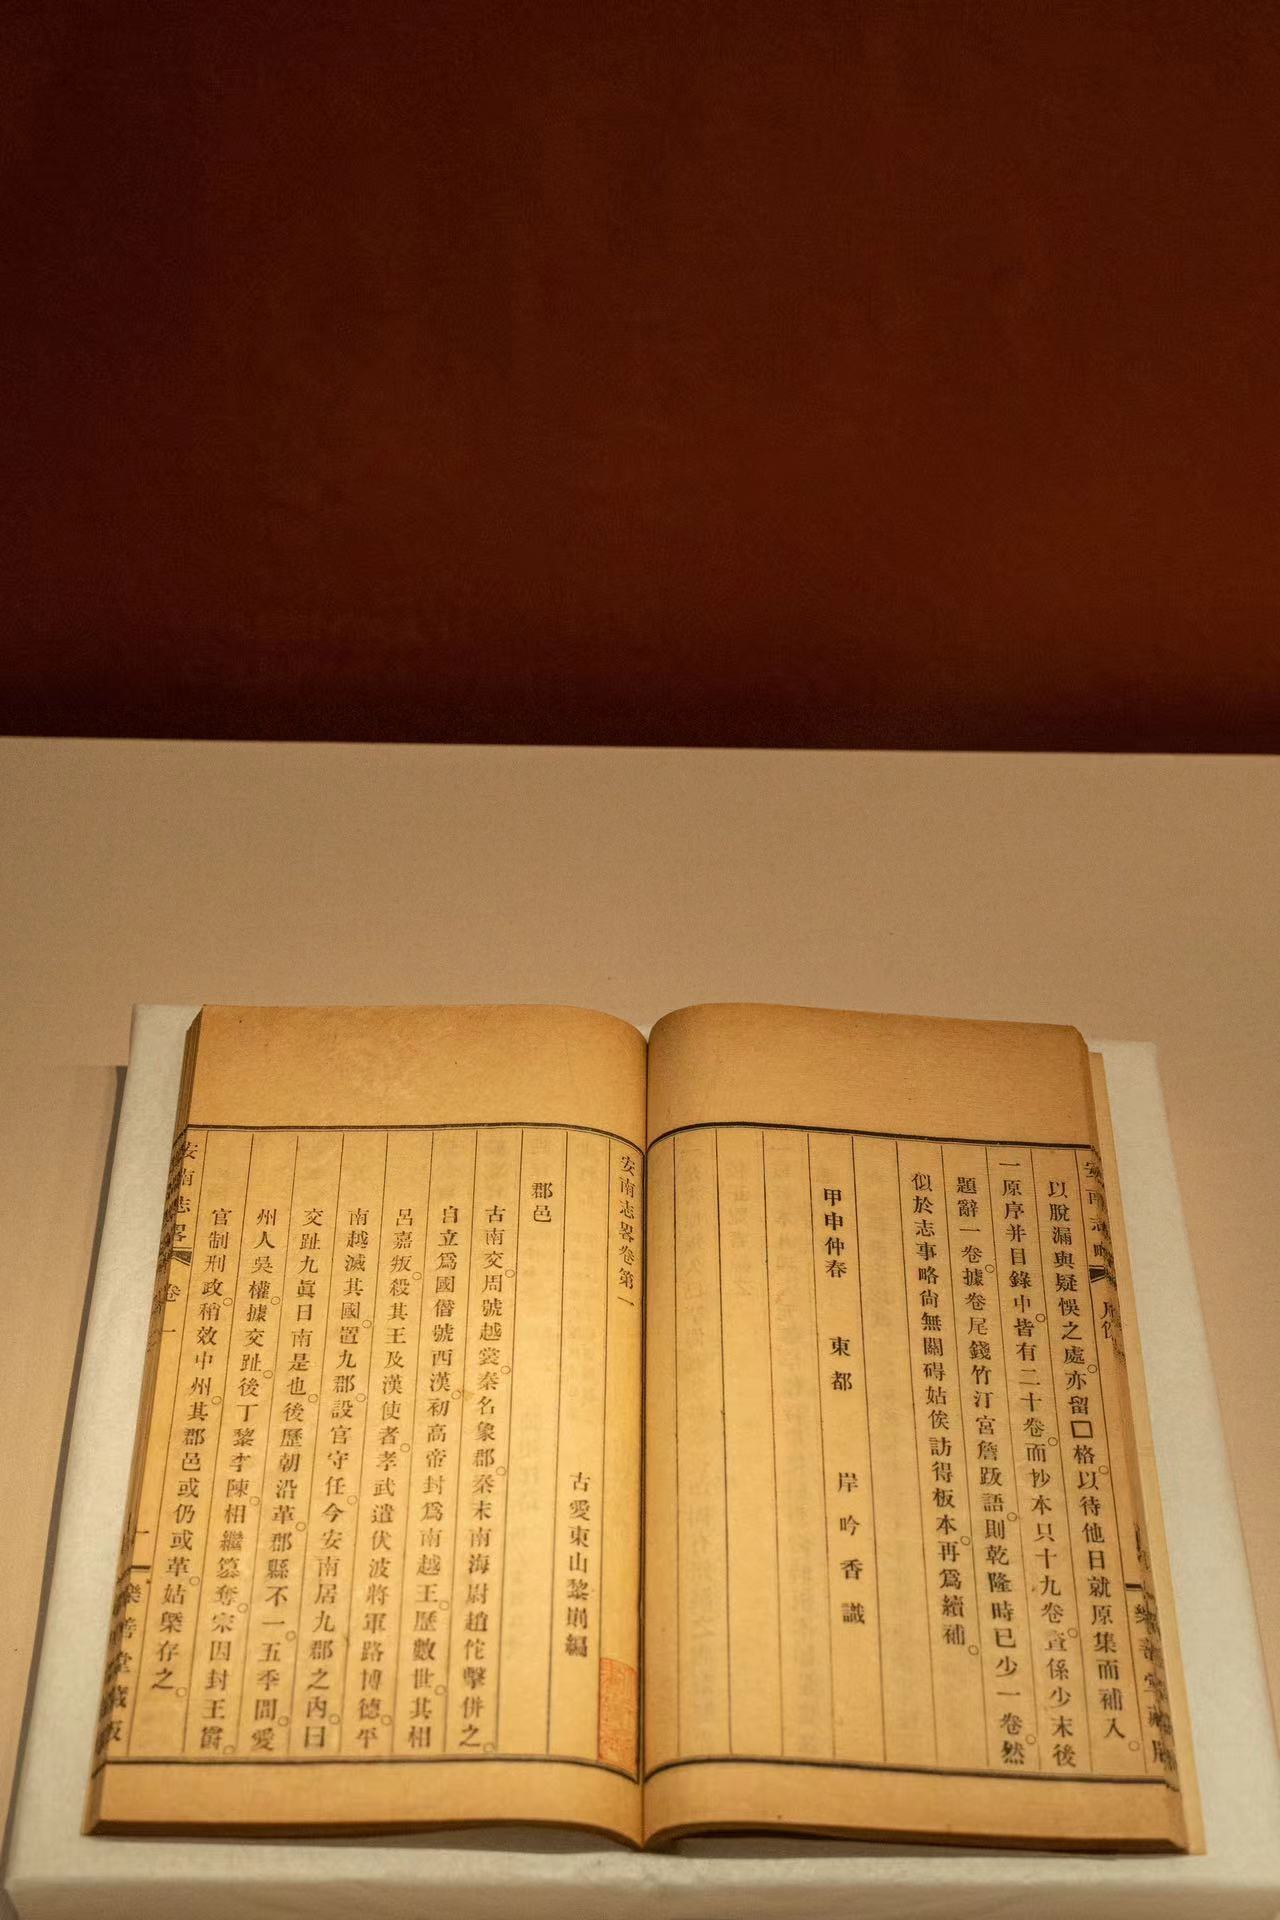 以脫漏與疑悞之處。亦留□格。以待他日就原集而補入。
一原序并目錄中。皆有二十卷。而抄本只十九卷。宣係少末後
題辭一卷。據卷尾錢竹汀宮詹跋語。則乾隆時已少一卷。然
似於志事略尙無關碍姑俟訪得板本。再爲續補。
甲申仲春 東都 岸吟香識
安南志畧卷第一
古愛東山黎崱編
郡邑
古南交。周號越裳。秦名象郡。秦末南海尉趙佗擊併之。
自立爲國僭號西漢。初高帝封爲南越王。歷數世。其相
呂嘉叛。殺其王及漢使者。孝武遣伏波將軍路博德。平
南越滅其國。置九郡。設官守任。今安南居九郡之內。曰
交趾九眞日南是也。後歷朝沿革。郡縣不一。五季間。愛
州人吳權。據交趾。後丁黎李陳。相繼簒奪。宋因封王爵。
官制刑政。稍效中州。其郡邑或仍或革。姑槩存之。
安南志畧 卷一 一 樂善堂藏板